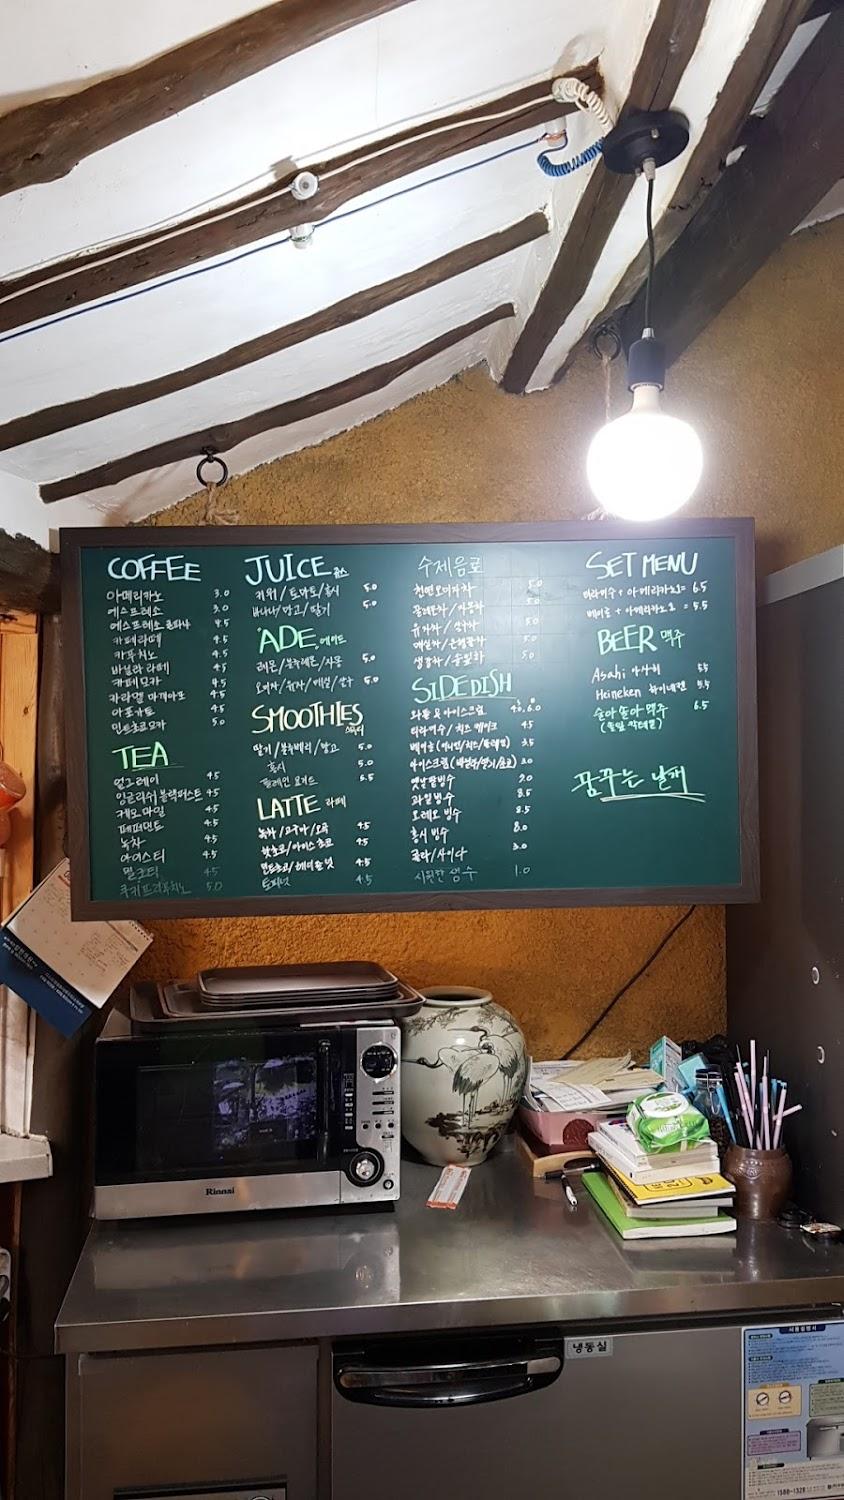 COFFEE
아메리카노 3.0
에스프레소 3.0
에스프레소 콘파나 4.5
카페라떼 4.5
카푸치노 4.5
바닐라 라떼 4.5
카페모카 4.5
카라멜 마끼아또 4.5
아포가토 4.5
민트초코모카 5.0
TEA
얼그레이 4.5
잉글리쉬 블랙퍼스트 4.5
캐모마일 4.5
페퍼민트 4.5
녹차 4.5
아이스티 4.5
밀크티 4.5
쿠키프라푸치노 5.0
JUICE 쥬스
키위/토마토/홍시 5.0
바나나/망고/딸기 5.0
ADE 에이드
레몬/블루레몬/자몽 5.0
오미자/유자/매실/ 5.0
SMOOTHIES 스무디
딸기/블루베리/망고 5.0
홍시 5.0
플레인 요거트 5.5
LATTE 라떼
녹차/고구마/오곡 4.5
핫초코/아이스초코 4.5
민트초코/헤이즐넛 4.5
토피넛 4.5
수제음료
천연오미자차 5.0
모과차/자몽차 5.0
유자차/ 5.0
매실차/ 5.0
생강차/ 5.0
SIDE DISH
와플 & 아이스크림 4.0, 6.0
티라미수/치즈케이크 4.5
베이글(어니언/치즈/플레인) 3.5
아이스크림(바닐라/딸기/초코) 3.0
옛날팥빙수 9.0
과일빙수 8.5
오레오빙수 8.5
홍시빙수 8.0
콜라/사이다 3.0
시원한 생수 1.0
SET MENU
티라미수 + 아메리카노1 = 6.5
베이글 + 아메리카노1 = 5.5
BEER 맥주
Asahi 아사히 5.5
Heineken 하이네켄 5.5
솔아솔아맥주 6.5
(솔잎 칵테일)
꿈꾸는 날개
Rinnai
냉동실
사용설명서
1588-1328